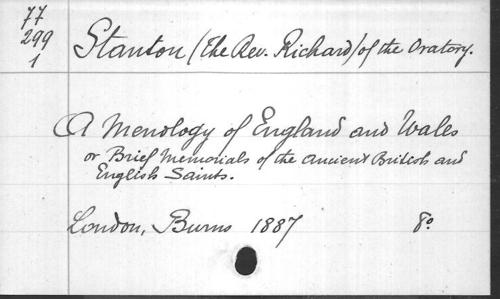 77
299
1
Stanton (The Rev. Richard) of the Oratory.
A Menology of England and Wales
or Brief Memorials of the Ancient British and
English Saints.
London, Burns 1887 8o